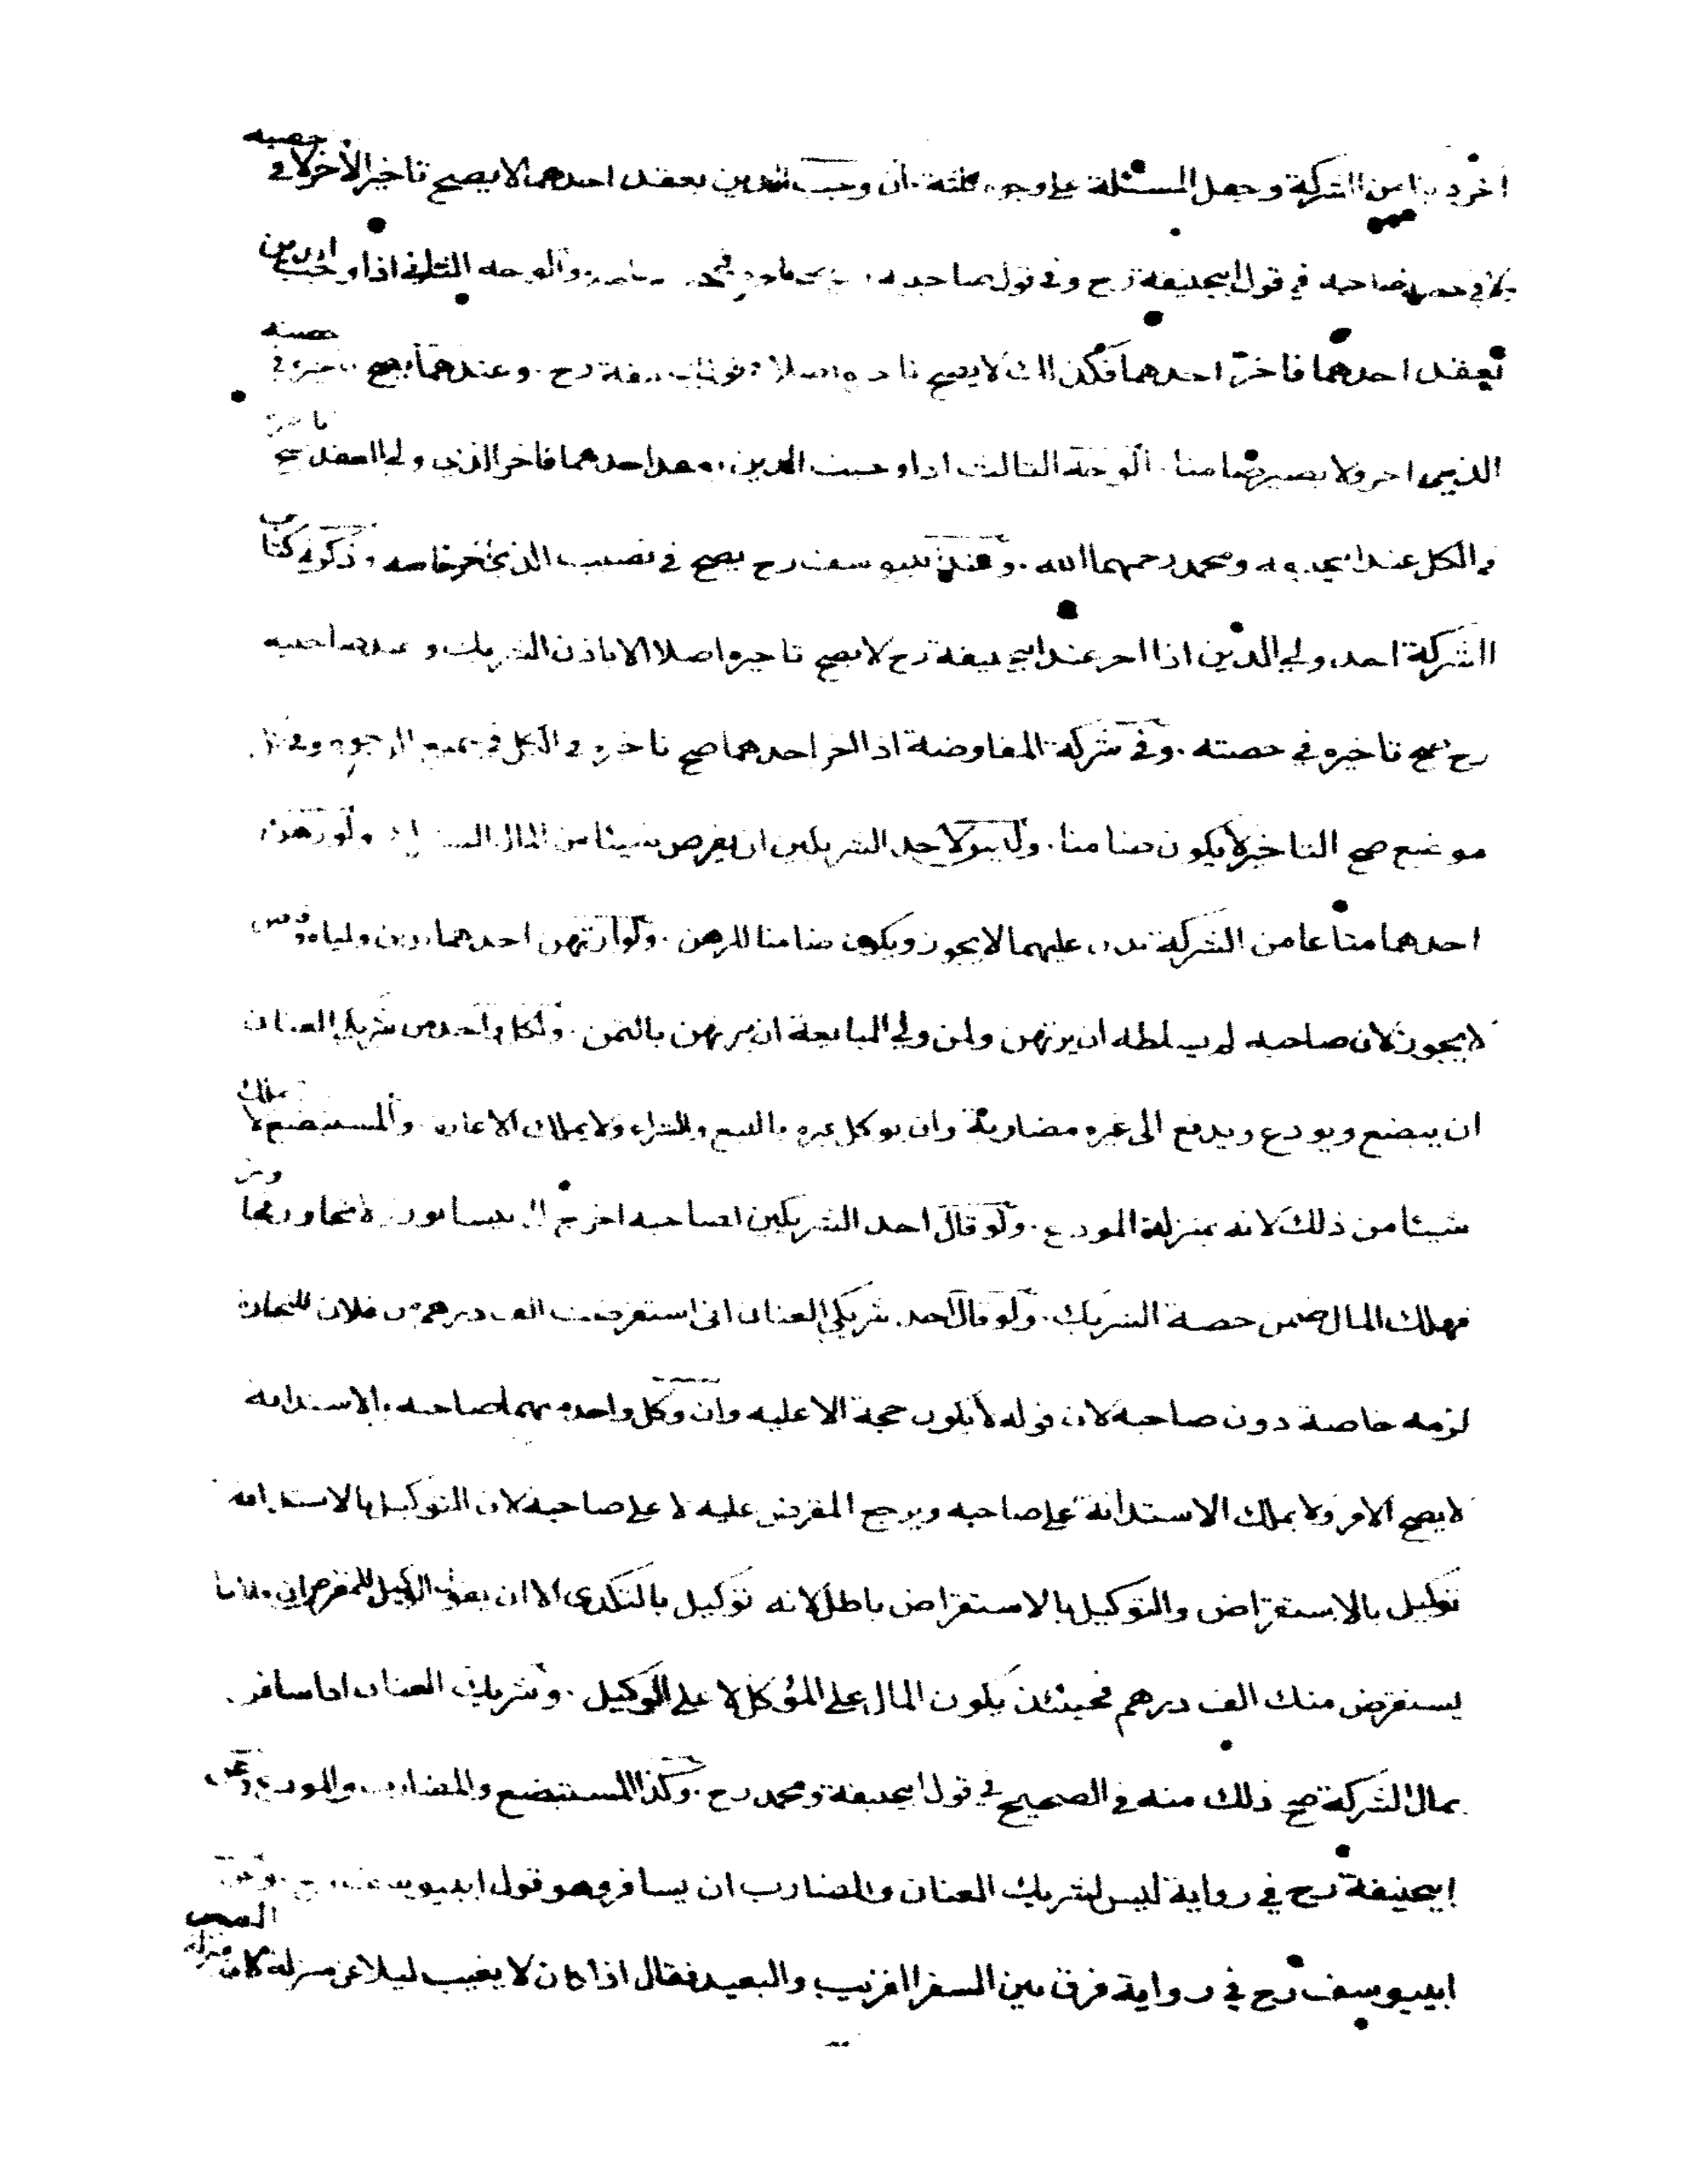 اخر دينا من الشركة وجعل المسئلة على وجوه ثلثة ان وجب الدين بعقد احدهما لا يصح تاخير الآخر لا في حصته
ولا في حصة صاحبه في قول ابيحنيفة رح وفي قول صاحبيه والوجه الثاني اذا وجب الدين
بعقد احدهما فاخر احدهما فكذلك لا يصح تاخيره اصلا في قول ابيحنيفة رح وعندهما يصح تاخيره في حصته
الذي اخر ولا يصير ضامنا الوجه الثالث اذا وجب الدين بعقد احدهما فاخر الذي ولي العقد صح تاخيره
في الكل عند ابيحنيفة ومحمد رحمهما الله وعند ابييوسف رح يصح في نصيب الذي اخر خاصه وذكر في كتاب
الشركة احد ولي الدين اذا اخر عند ابيحنيفة رح لا يصح تاخيره اصلا الا باذن الشريك وعند صاحبيه
رح يصح تاخيره في حصته وفي شركة المفاوضة اذا اخر احدهما صح تاخيره في الكل في جميع الوجوه وفي كل
موضع صح التاخير لا يكون ضامنا وليس لاحد الشريكين ان يقرض شيئا من المال المشترك ولو رهن
احدهما متاعا من الشركة بدين عليهما لا يجوز ويكون ضامنا للرهن ولو ارتهن احدهما بدين ولياه وقبض
لا يجوز لان صاحبه لم يسلطه ان يرتهن ولمن ولي المبايعة ان يرتهن بالثمن ولكل واحد من شريكي العنان
ان يبضع ويودع ويدفع الى غيره مضاربة وان يوكل غيره بالبيع والشراء ولا يملك الاعارة والمستبضع لا يملك
شيئا من ذلك لانه بمنزلة المودع ولو قال احد الشريكين لصاحبه اخرج الى نيسابور ولا تجاوز فجاوز
فهلك المال ضمن حصة الشريك ولو قال احد شريكي العنان اني استقرضت الف درهم من فلان للتجارة
لزمه خاصة دون صاحبه لان قوله لا يكون حجة الا عليه وان وكل واحد منهما صاحبه بالاستدانة
لا يصح الامر ولا يملك الاستدانة على صاحبه ويرجع المقرض عليه لا على صاحبه لان التوكيل بالاستدانة
توكيل بالاستقراض والتوكيل بالاستقراض باطل لانه توكيل بالتكدي الا ان يقول الوكيل للمقرض ان فلانا
يستقرض منك الف درهم فحينئذ يكون المال على المؤكل لا على الوكيل وشريك العنان اذا سافر
بمال الشركة صح ذلك منه في الصحيح في قول ابيحنيفة ومحمد رح وكذا المستبضع والمضارب والمودع وعن
ابيحنيفة رح في رواية ليس لشريك العنان والمضارب ان يسافر وهو قول ابييوسف رح وعن
ابييوسف رح في رواية فرق بين السفر القريب والبعيد فقال اذا كان لا يغيب ليلا عن منزله كان